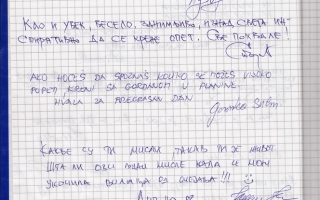 КАО И УВЕК, ВЕСЕЛО, ЗАНИМЉИВО, ИЗНАД СВЕГА ИН-
СПИРАТИВНО ДА СЕ КРЕНЕ ОПЕТ. СВЕ ПОХВАЛЕ!
AKO HOĆEŠ DA SPOZNAŠ KOLIKO SE MOŽEŠ VISOKO
POPETI KRENI SA GORDANOM U PLANINE.
HVALA ZA PREKRASAN DAN
КАКВЕ СУ ТИ МИСЛИ ТАКАВ ТИ ЈЕ ЖИВОТ
ШТА ЛИ ОВИ ЉУДИ МИСЛЕ КАДА ЈЕ МОЈА
УКОЧИЛА ВИЛИЦА ОД СМЕЈАЊА!!!